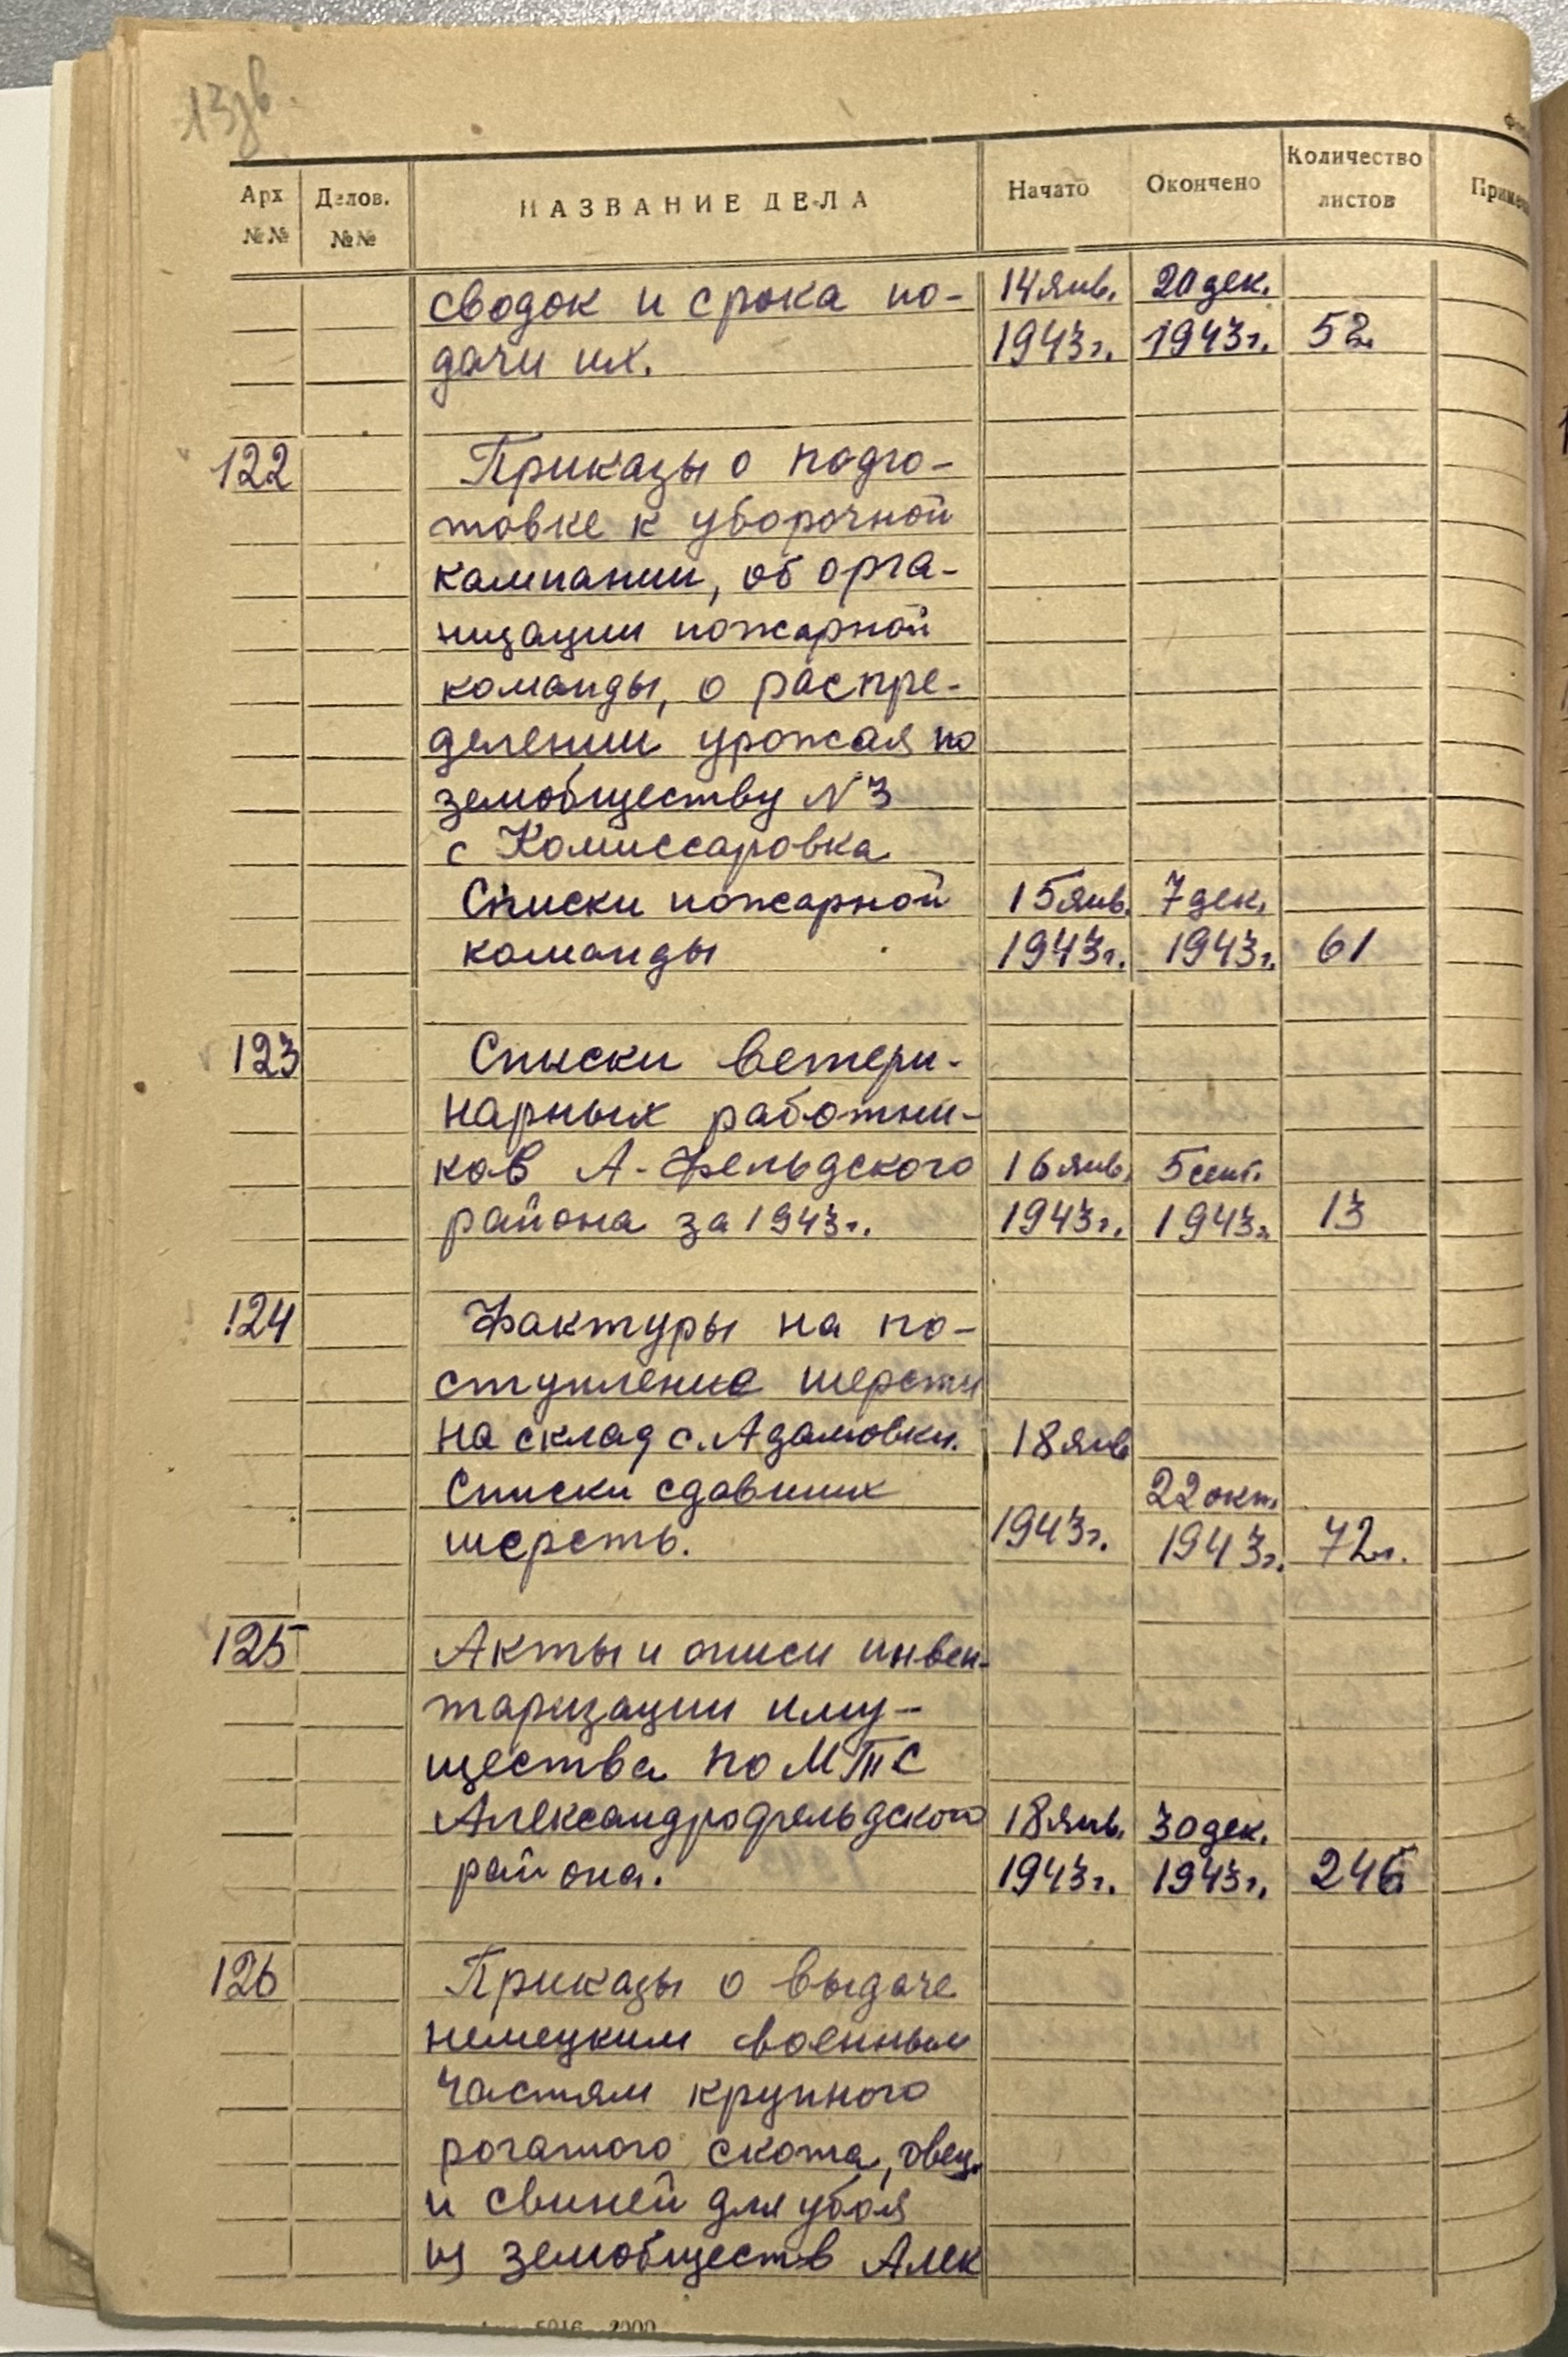 13зв.
Арх №№ Делов. №№ НАЗВАНИЕ ДЕЛА Начато Окончено Количество листов
сводок и срока по- 14 янв. 20 дек.
дачи их. 1943г. 1943г. 52
122 Приказы о подго-
товке к уборочной
кампании, об орга-
низации пожарной
команды, о распре-
делении урожая по
земобществу N 3
с Комиссаровка
Списки пожарной 15 янв. 7 дек.
команды 1943г. 1943г. 61
123 Списки ветери-
нарных работни-
ков А-Фельдского 16 янв. 5 сент.
района за 1943г. 1943г. 1943г. 13
124 Фактуры на по-
ступление шерсти
на склад с. Адамовки. 18 янв
Списки сдавших 22 окт.
шерсть. 1943г. 1943г. 72л.
125 Акты и описи инвен-
таризации иму-
щества по МТС
Александрофельдского 18 янв. 30 дек.
района. 1943г. 1943г. 246
126 Приказы о выдаче
немецким военным
частям крупного
рогатого скота, овец
и свиней для убоя
из земобществ Алек